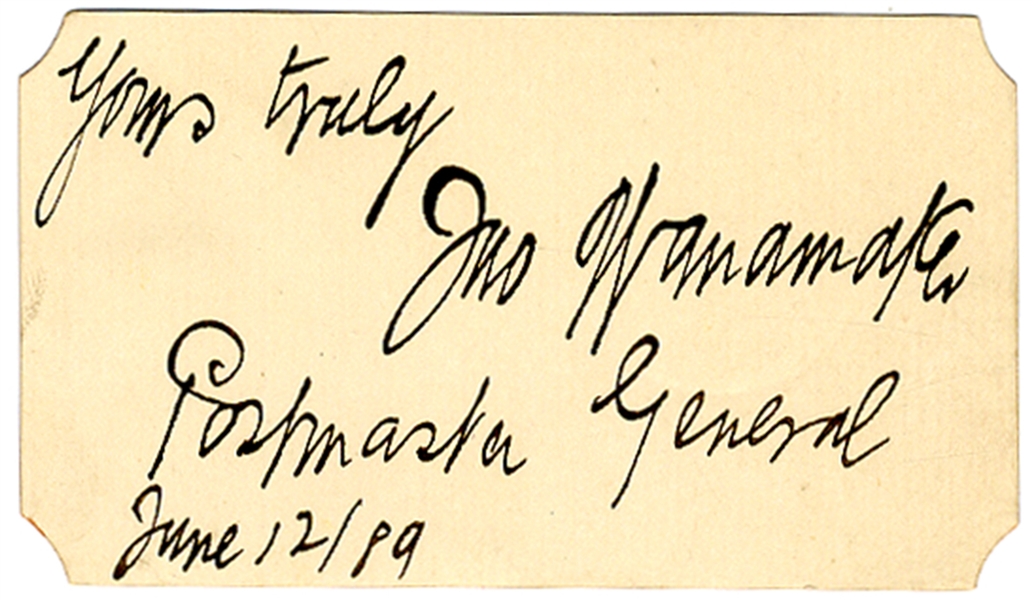 Yours truly
Jno Wanamaker
Postmaster General
June 12/89